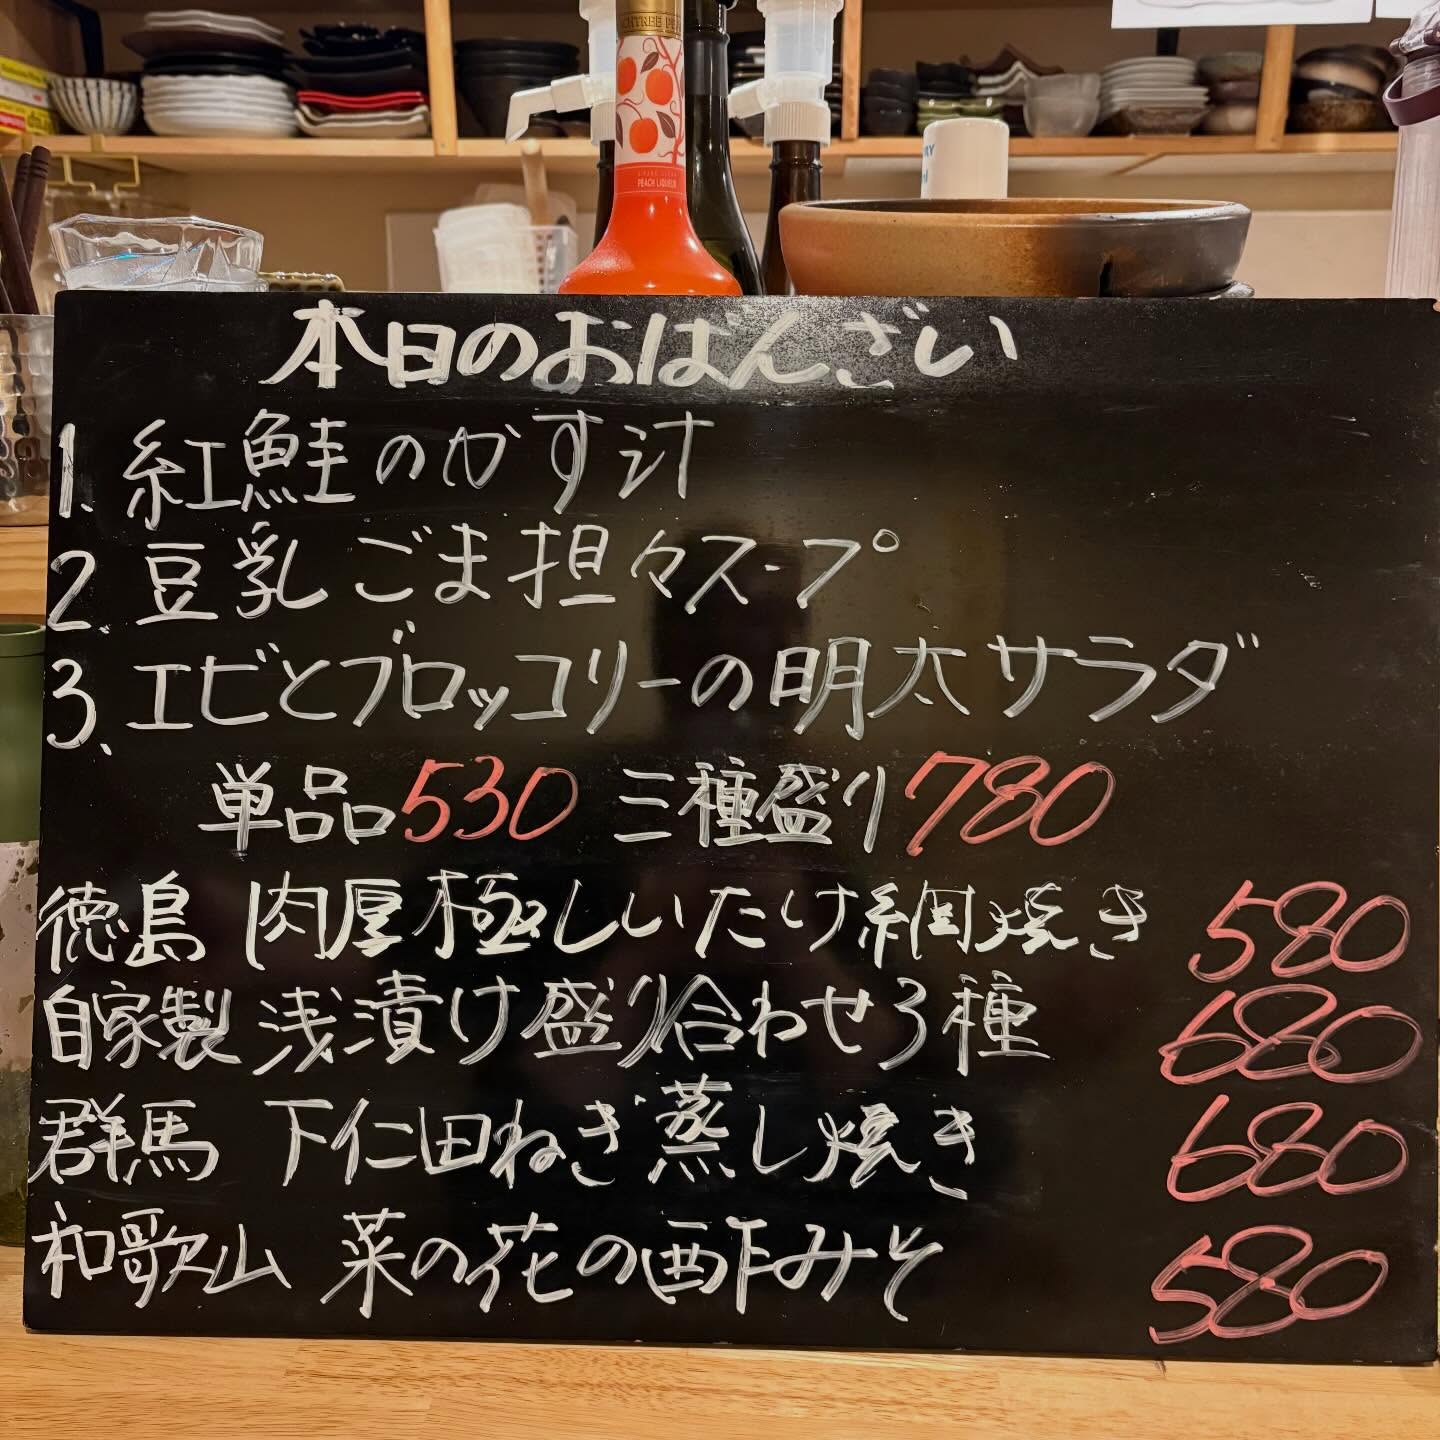 PEACHTREE
PEACH LIQUEUR
本日のおばんざい
1. 紅鮭のかす汁
2. 豆乳ごま担々スープ
3. エビとブロッコリーの明太サラダ
単品530 三種盛り780
徳島 肉厚極しいたけ網焼き 580
自家製 浅漬け盛り合わせ3種 680
群馬 下仁田ねぎ蒸し焼き 680
和歌山 菜の花の酢みそ 580